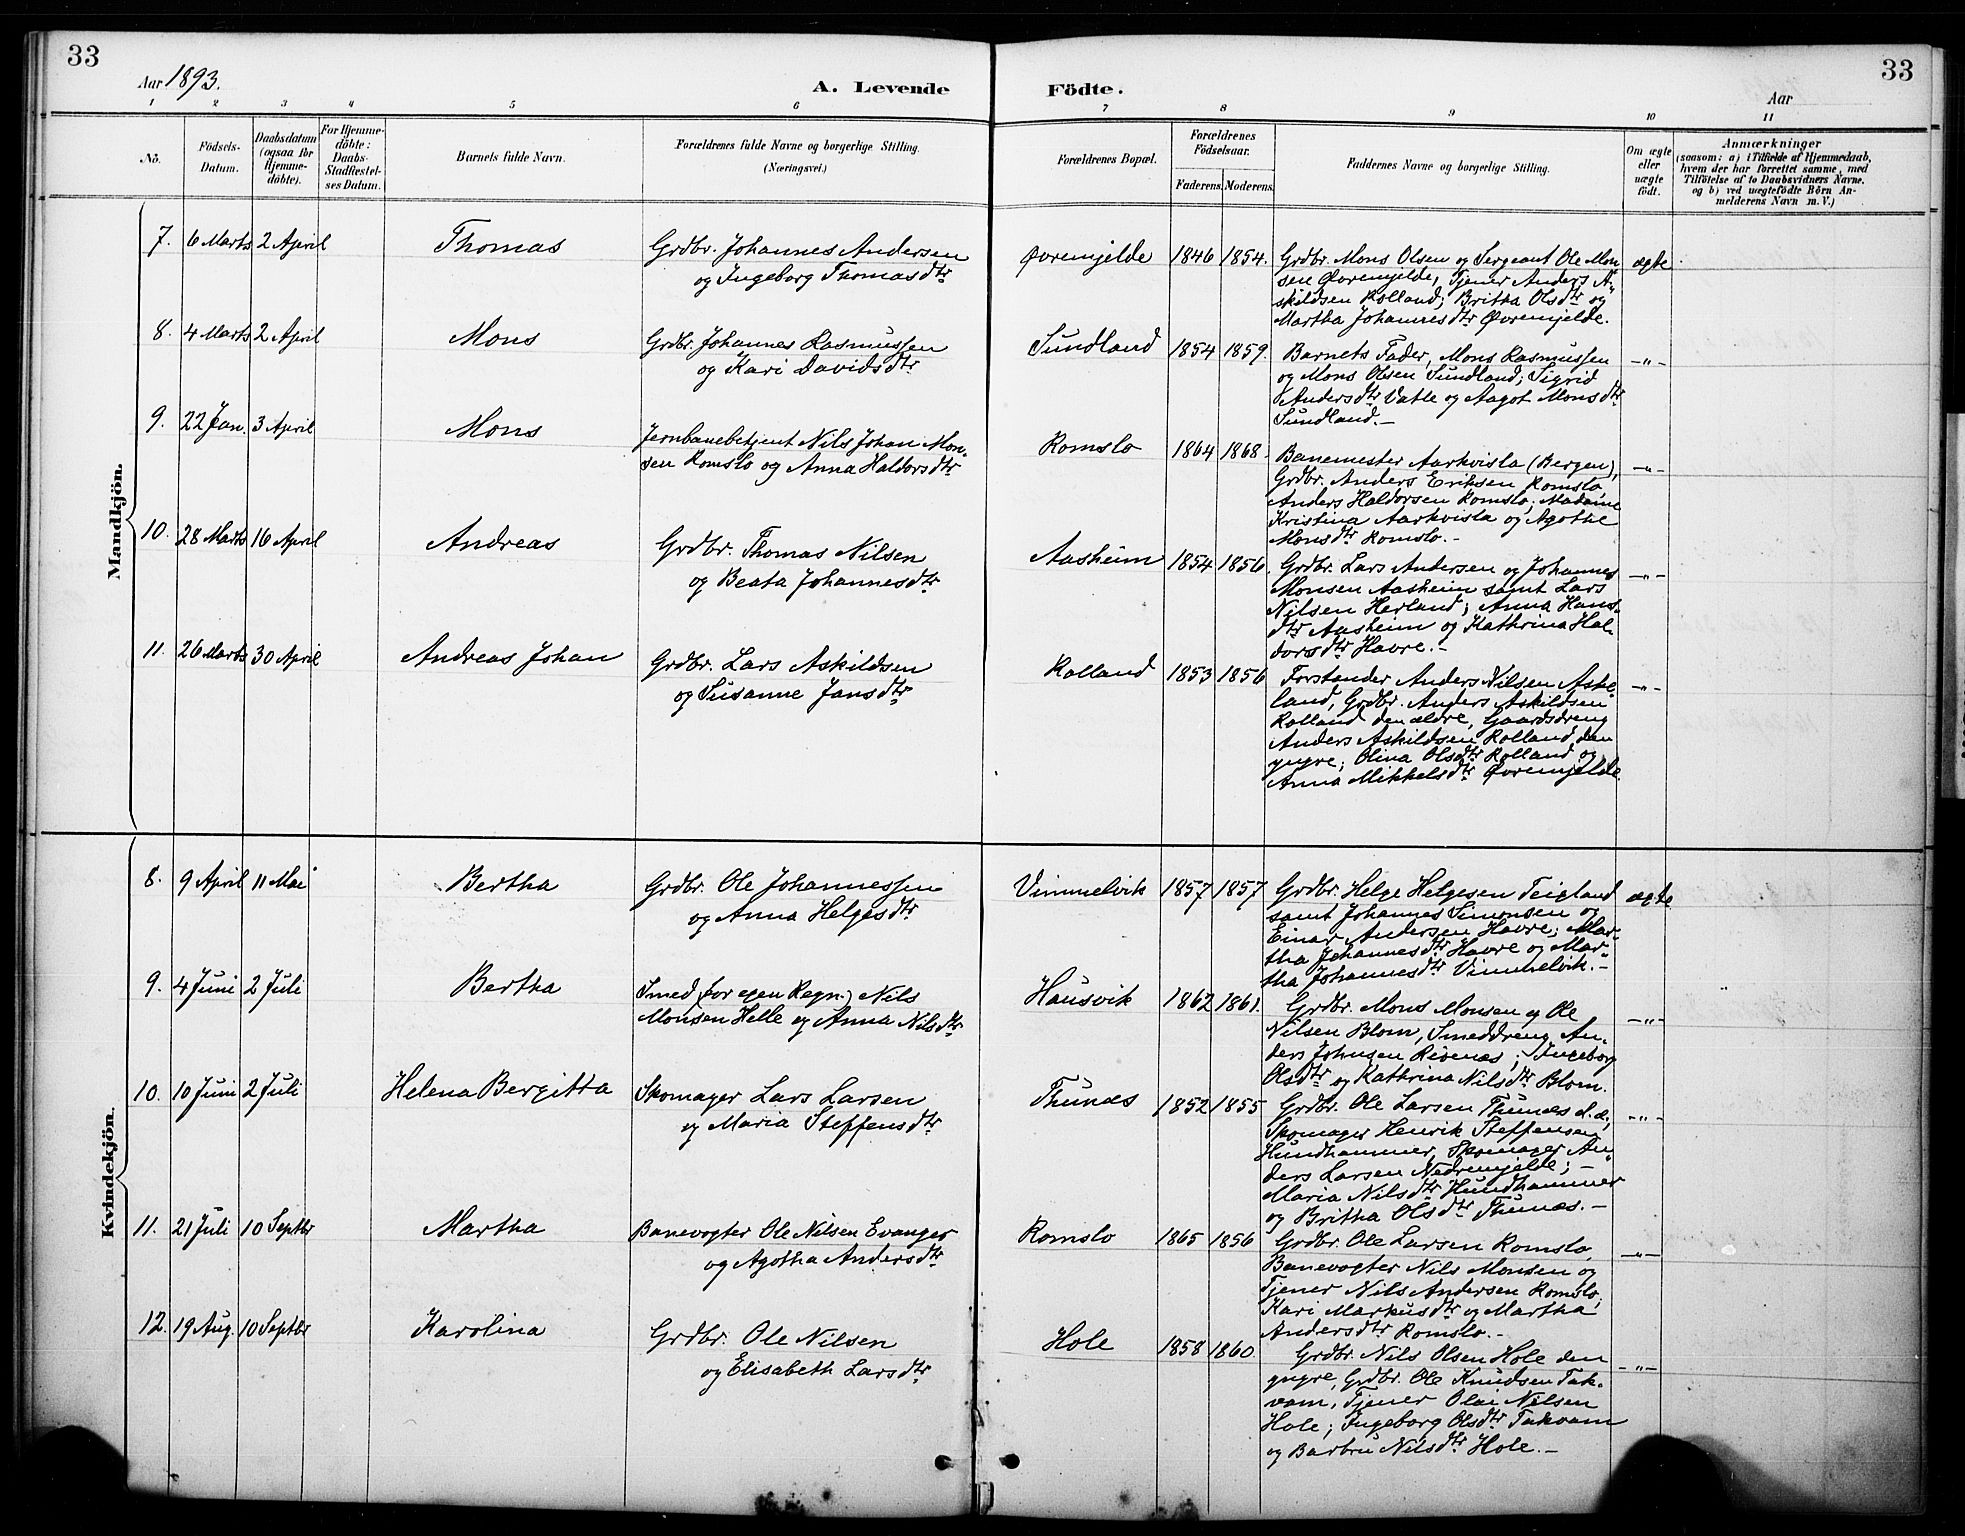 33
Aar 1893.
A. Levende
1 2 3 4 5 6
No.
Födsels-
Datum.
Daabsdatum
(ogsaa for
Hjemme-
döbte).
For Hjemme-
döbte:
Daabs-
Stadfæstel-
ses Datum.
Barnets fulde Navn.
Forældrenes fulde Navne og borgerlige Stilling.
(Næringsvei.)
Mandkjön.
7. 6 Marts 2 April Thomas Grdbr. Johannes Andersen
og Ingeborg Thomasdtr
8. 4 Marts 2 April Mons Grdbr. Johannes Rasmussen
og Kari Davidsdtr
9. 22 Jan. 3 April Mons Jernbanebetjent Nils Johan Mon-
sen Romslo og Anna Haldorsdtr
10. 28 Marts 16 April Andreas Grdbr. Thomas Nilsen
og Beata Johannesdtr
11. 26 Marts 30 April Andreas Johan Grdbr. Lars Askildsen
og Susanne Jansdtr
Kvindekjön.
8. 9 April 11 Mai Bertha Grdbr. Ole Johannessen
og Anna Helgesdtr
9. 4 Juni 2 Juli Bertha Smed (for egen Regn.) Nils
Monsen Helle og Anna Nilsdtr
10. 10 Juni 2 Juli Helena Bergitta Skomager Lars Larsen
og Maria Steffensdtr
11. 21 Juli 10 Septbr Martha Banevogter Ole Nilsen Evanger
og Agotha Andersdtr
12. 19 Aug. 10 Septbr Karolina Grdbr. Ole Nilsen
og Elisabeth Larsdtr
Födte.
33
Aar
7 8 9 10 11
Forældrenes Bopæl.
Forældrenes
Födselsaar.
Faderens. Moderens.
Faddernes Navne og borgerlige Stilling.
Om ægte
eller
uægte
födt.
Anmærkninger
(saasom: a) i Tilfælde af Hjemmedaab,
hvem der har forrettet samme, med
Tilföielse af to Daabsvidners Navne,
og b) ved uægtefödte Börn An-
melderens Navn m. V.)
Øvremjelde 1846 1854. Grdbr. Mons Olsen og Sergeant Ole Mon-
sen Øvremjelde, Tjener Anders A-
skildsen Rolland; Britha Olsdtr og
Martha Johannesdtr Øvremjelde.
ægte
Sundland 1854 1859. Barnets Fader, Mons Rasmussen
og Mons Olsen Sundland; Sigrid
Andersdtr Vatle og Aagot Monsdtr
Sundland.-
-"-
Romslo 1864 1868. Banemester Aarkvisla (Bergen),
Grdbr. Anders Eriksen Romslo,
Anders Haldorsen Romslo; Madame
Kristina Aarkvisla og Agothe
Monsdtr Romslo.-
-"-
Aasheim 1854 1856. Grdbr. Lars Andersen og Johannes
Monsen Aasheim samt Lars
Nilsen Herland; Anna Hans-
dtr Aasheim og Kathrina Hal-
dorsdtr Havre.-
-"-
Rolland 1853 1856 Forstander Anders Nilsen Aske-
land, Grdbr. Anders Askildsen
Rolland den ældre, Gaardsdreng
Anders Askildsen Rolland den
yngre; Olina Olsdtr Rolland og
Anna Mikkelsdtr Øvremjelde.
-"-
Vimmelvik 1857 1857 Grdbr. Helge Helgesen Teigland
samt Johannes Simonsen og
Einar Andersen Havre; Mar-
tha Johannesdtr Havre og Mar-
tha Johannesdtr Vimmelvik.-
ægte
Hausvik 1862 1861. Grdbr. Mons Monsen og Ole
Nilsen Blom, Smeddreng An-
ders Johnsen Rivenæs; Ingeborg
Olsdtr og Kathrina Nilsdtr Blom.
-"-
Thunæs 1852 1855 Grdbr. Ole Larsen Thunæs d. æ,
Skomager Henrik Steffensen
Hundhammer, Skomager An-
ders Larsen Nedremjelde; -
Maria Nilsdtr Hundhammer
og Britha Olsdtr Thunæs.-
-"-
Romslo 1865 1856 Grdbr. Ole Larsen Romslo,
Banevogter Nils Monsen og
Tjener Nils Andersen Romslo;
Kari Markusdtr og Martha
Andersdtr Romslo.-
-"-
Hole 1858 1860 Grdbr. Nils Olsen Hole den
yngre, Grdbr. Ole Knudsen Tak-
vam, Tjener Olai Nilsen
Hole; Ingeborg Olsdtr Takvam
og Barbru Nilsdtr Hole.-
-"-